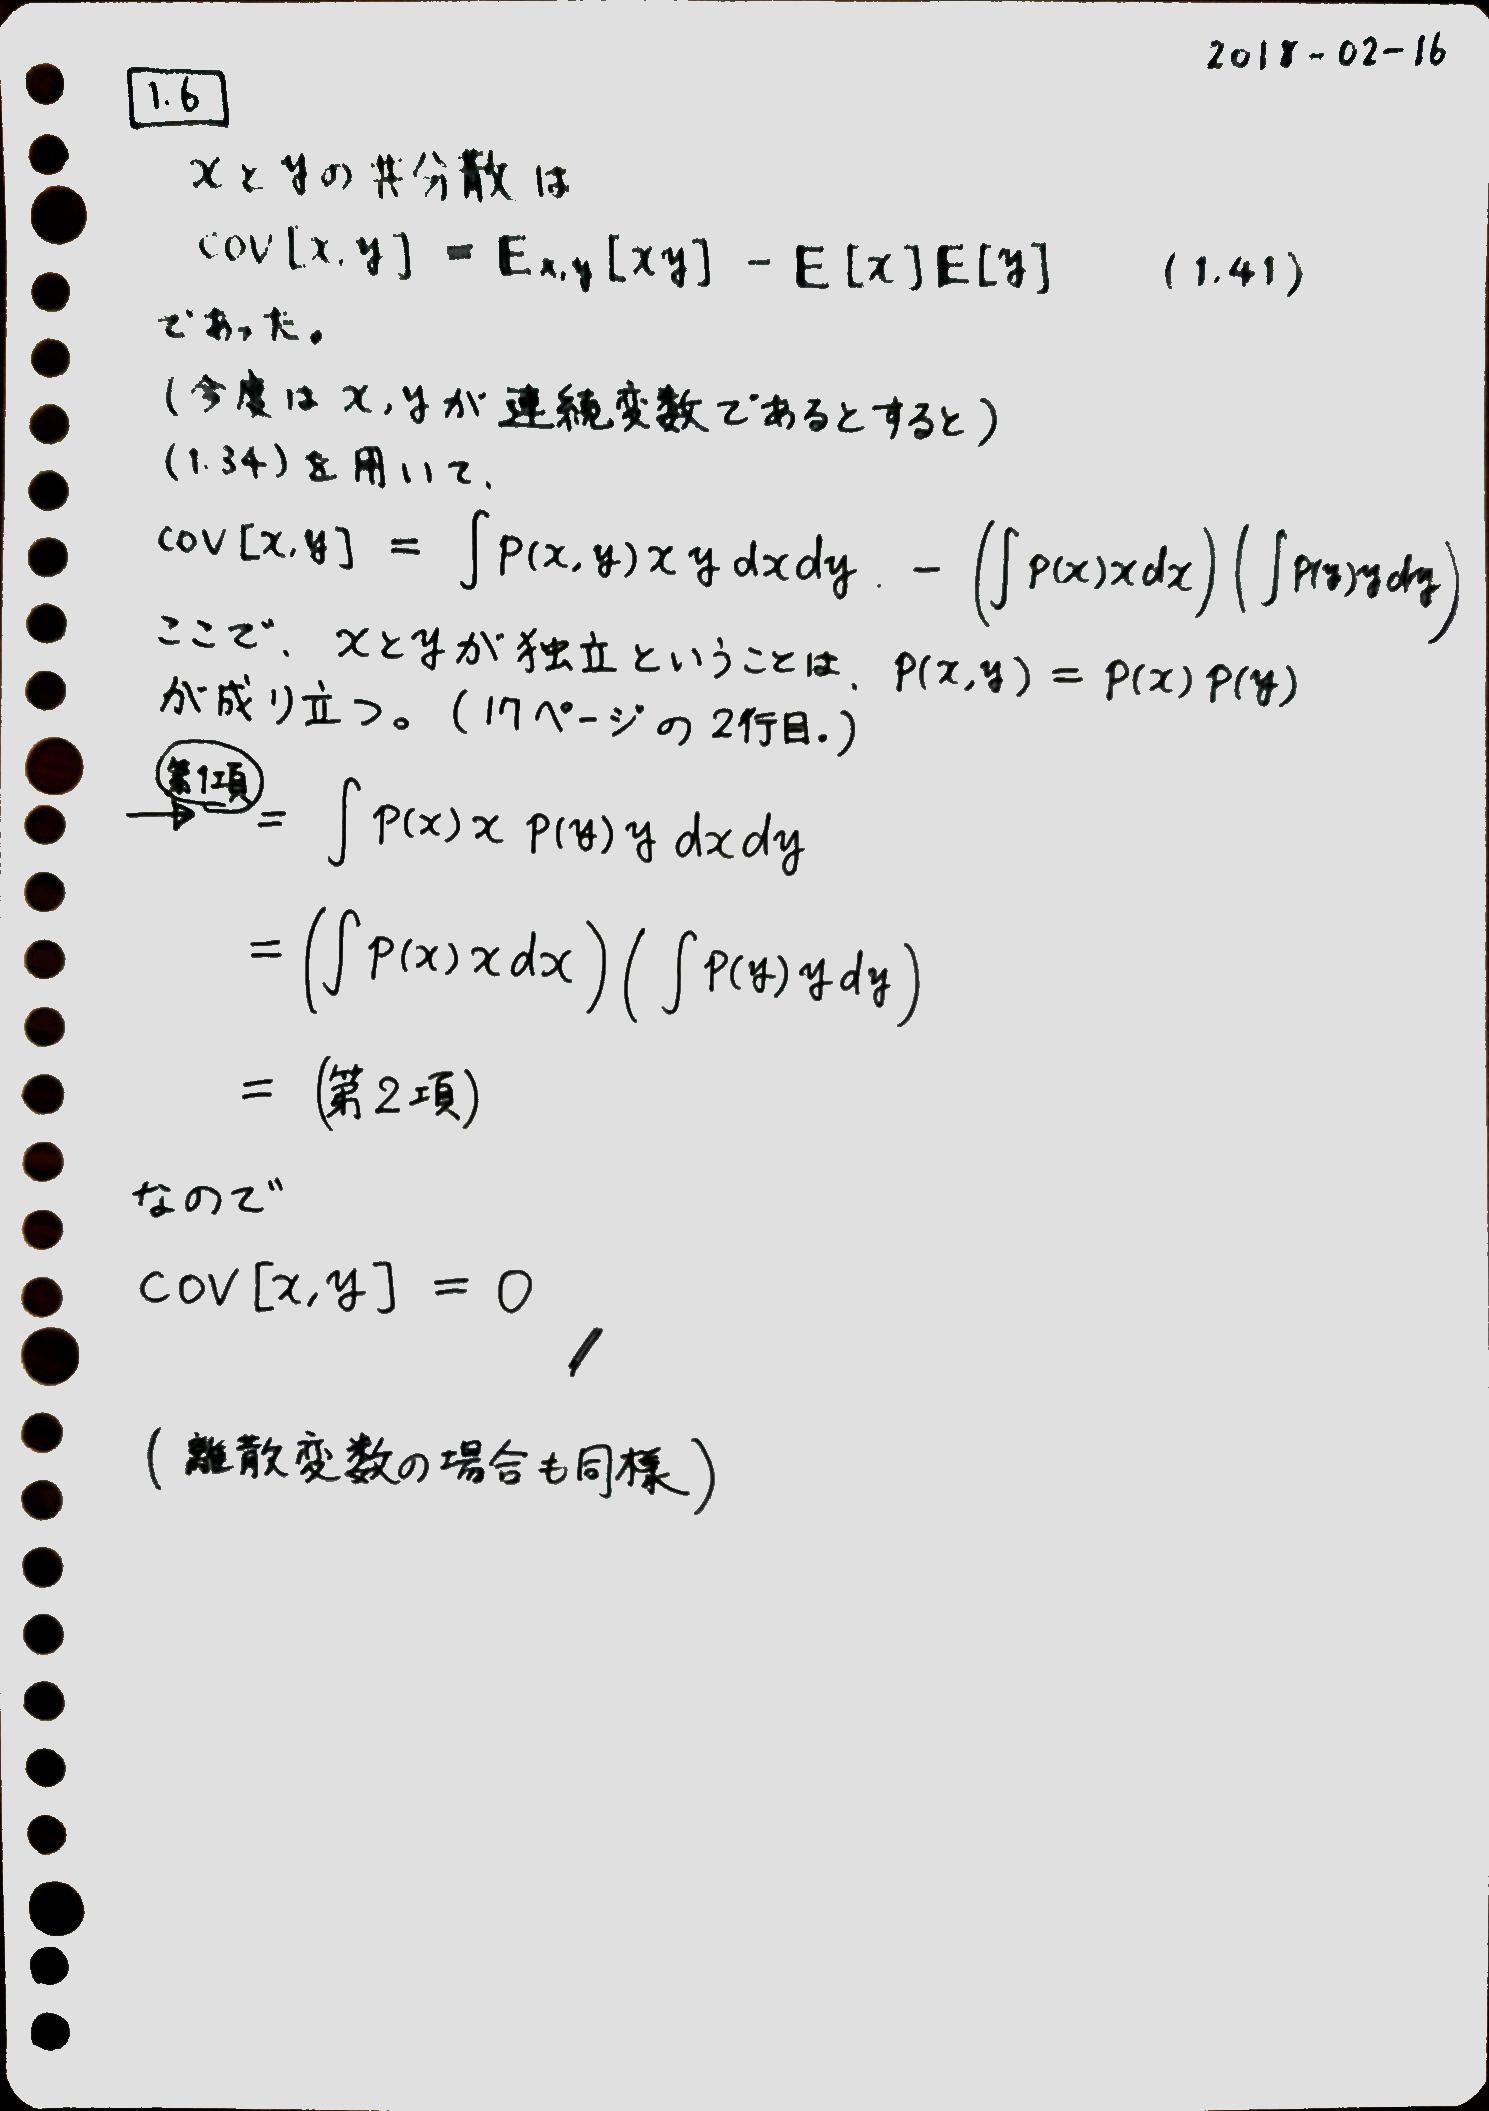 2018-02-16
1.6
xとyの共分散は
cov[x,y] = E_{x,y}[xy] - E[x]E[y] (1.41)
であった。
(今度は x,yが連続変数であるとすると)
(1.34)を用いて、
cov[x,y] = ∫P(x,y)xy dxdy. - (∫P(x)xdx)(∫P(y)ydy)
ここで、xとyが独立ということは、P(x,y) = P(x)P(y)
が成り立つ。(17ページの2行目.)
→ 第1項 = ∫P(x)x P(y)y dxdy
= (∫P(x)xdx)(∫P(y)ydy)
= (第2項)
なので
cov[x,y] = 0
(離散変数の場合も同様)